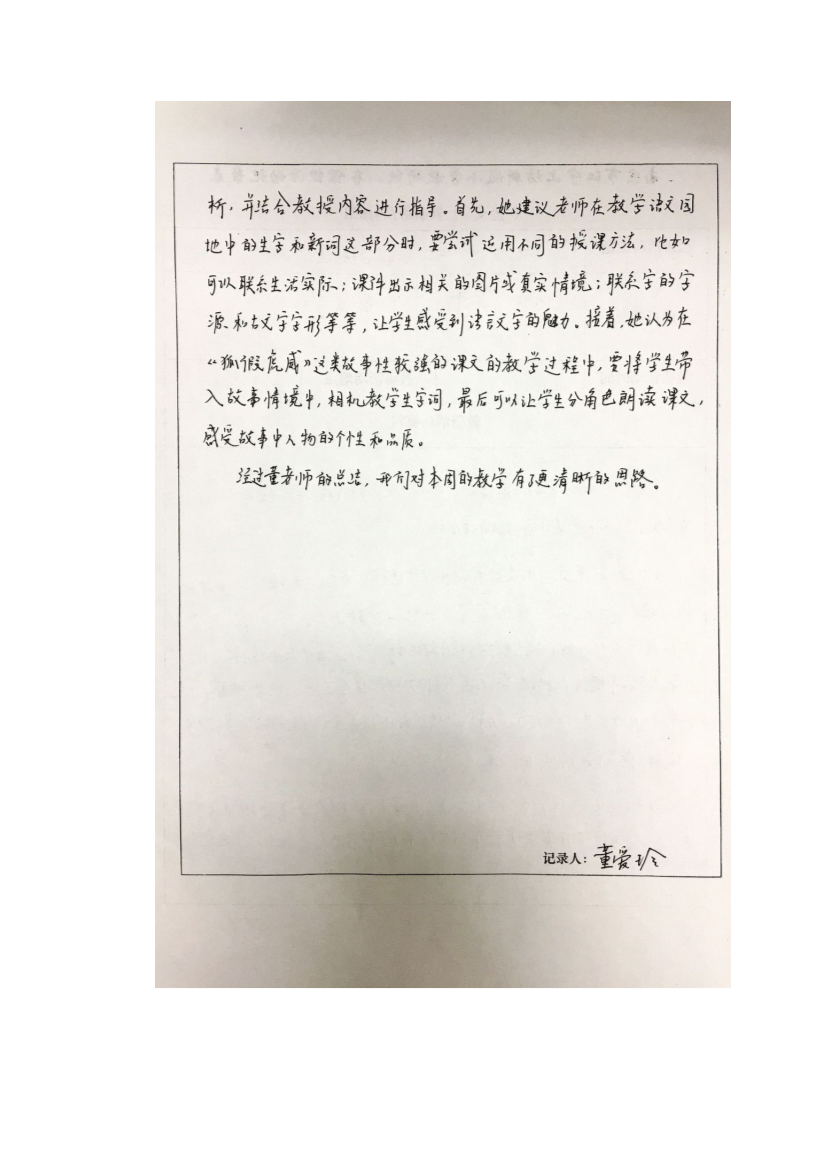 析，并结合教授内容进行指导。首先，她建议老师在教学语文园
地中的生字和新词这部分时，要尝试运用不同的授课方法，比如
可以联系生活实际；课件出示相关的图片或真实情境；联系字的字
源和古文字字形等等，让学生感受到语言文字的魅力。接着，她认为在
《狐假虎威》这类故事性较强的课文的教学过程中，要将学生带
入故事情境中，相机教学生字词，最后可以让学生分角色朗读课文，
感受故事中人物的个性和品质。
经过董老师的总结，我们对本周的教学有了更清晰的思路。
记录人：董爱玲